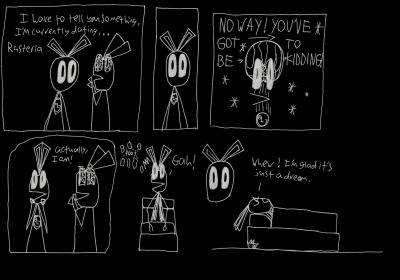 I have to tell you something,
I'm currently dating...
Rasteria
NO WAY! YOU'VE
GOT TO
BE KIDDING!
actually,
I am!
Gah!
Whew! I'm glad it's
just a dream.